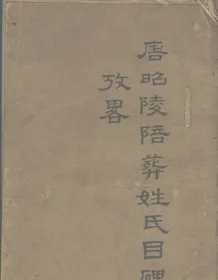 唐昭陵陪葬姓氏目碑
攷畧